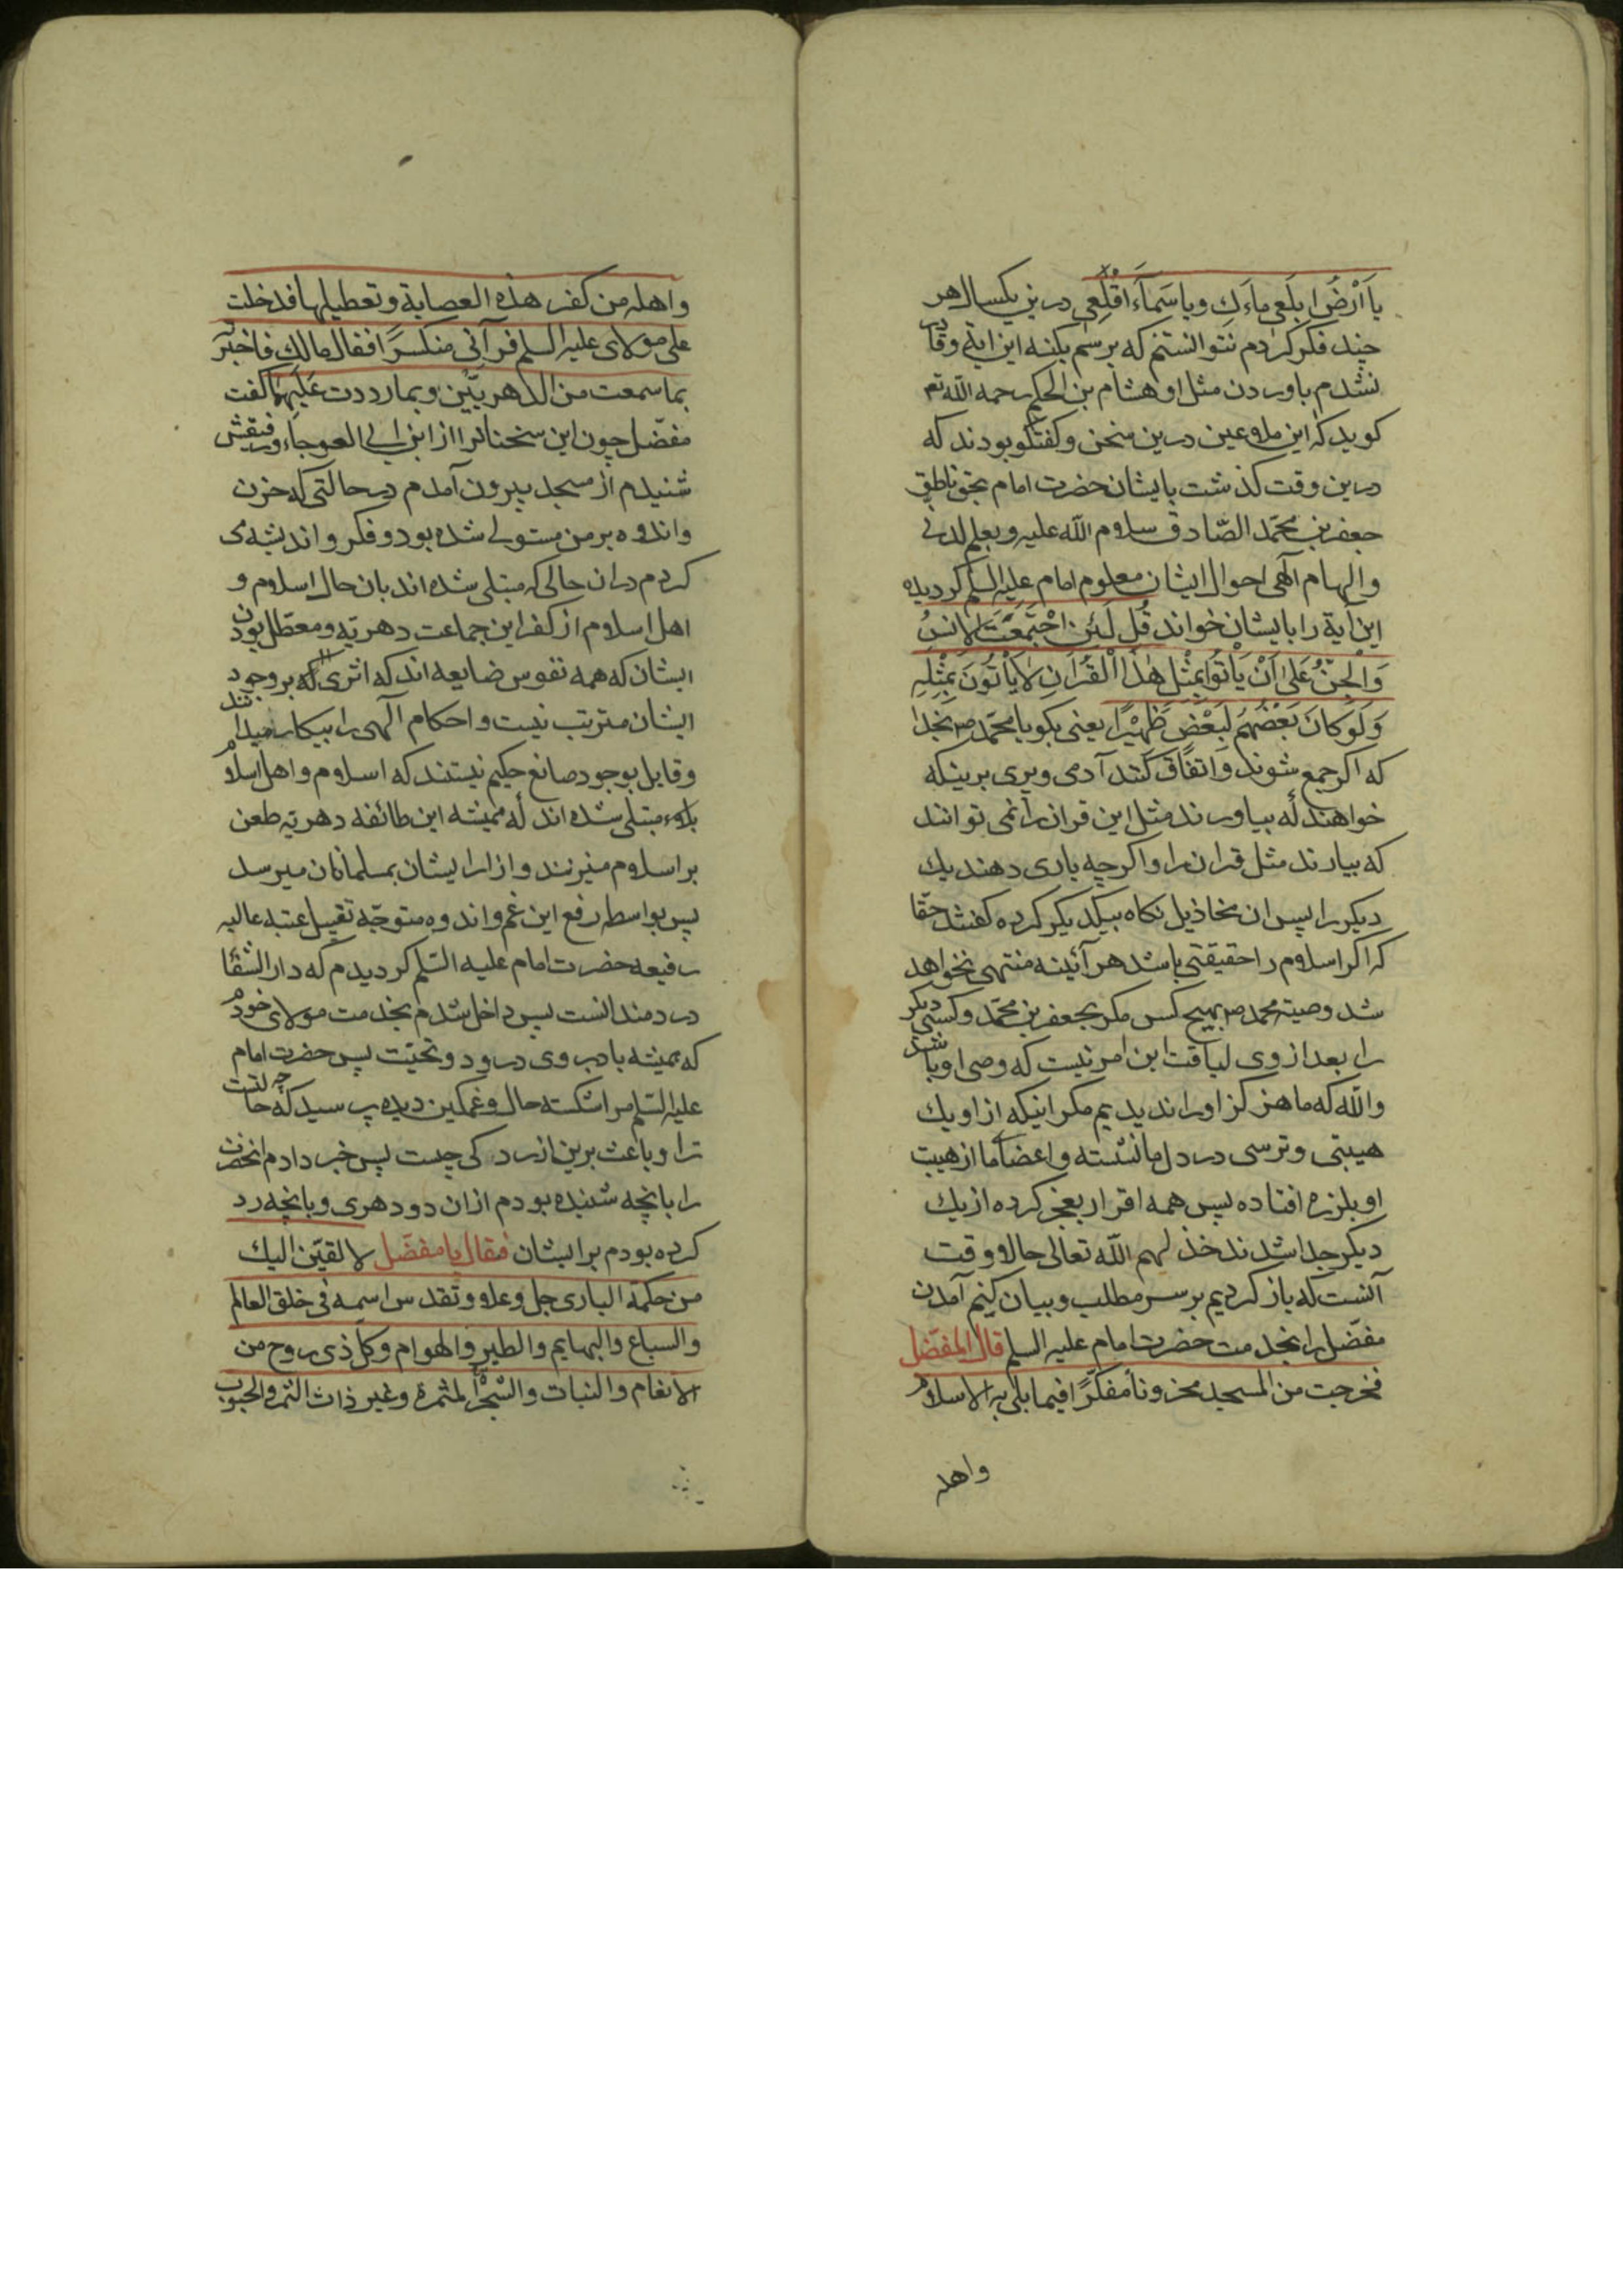 یا اَرْضُ ابلَعی ماءَكِ ویا سَماءُ اَقْلِعی درین یکسال هر
چند فکر کردم نتوانستم که برسم بکنه این ایة وقادر
نشدم باوردن مثل او هشام بن الحکم رحمه الله تع
کوید که این ملاعین درین سخن وکفتکو بودند که
درین وقت کذشت بایشان حضرت امام بحق ناطق
جعفر بن محمّد الصّادق سلام الله علیه وبعلم لدنی
والهام آلهی احوال ایشان معلوم امام علیه السلم کردیده
این آیة را بایشان خواند قُل لَئِنِ اجْتَمَعَتِ الاِنسُ
وَالْجِنُّ عَلی اَنْ یَأتُوا بِمِثْلِ هٰذَا الْقُرْآنِ لایَأتُونَ بِمِثْلِهِ
وَلَوْ کانَ بَعْضُهُمْ لِبَعْضٍ ظَهیْرًا یعنی بکو یا محمّد ص بخدا
که اکر جمع شوند واتفاق کنند آدمی وپری برینکه
خواهند که بیاورند مثل این قران را نمی توانند
که بیارند مثل قران را واکرچه یاری دهند یك
دیکر را پس ان مخاذیل نکاه بیکدیکر کرده کفتند حقّا
که اکر اسلام را حقیقتی باشد هر آئینه منتهی نخواهد
شد وصیّة محمد ص بهیچ کس مکر بجعفر بن محمّد وکسی دیکر
را بعد از وی لیاقت این امر نیست که وصی او باشد
والله که ما هرکز او را ندیدیم مکر اینکه از او یك
هیبتی وترسی در دل ما نشسته واعضای ما از هیبت
او بلرزه افتاده پس همه اقرار بعجز کرده از یك
دیکر جدا شدند خذلهم الله تعالی حالا وقت
آنست که باز کردیم بر سر مطلب وبیان کنیم آمدن
مفضّل را بخدمت حضرت امام علیه السلم قال المفضّل
فخرجت من المسجد محزونًا مفکّرًا فیما بلی به الاسلام
واهله
واهله من کفر هذه العصابة وتعطیلها فدخلت
علی مولای علیه السلم فرآنی منکسرًا فقال مالك فاخبرته
بما سمعت من الدهریّین وبما رددت علیهما کفت
مفضّل چون این سخنانرا از ابن ابی العوجاء ورفیقش
شنیدم از مسجد بیرون آمدم در حالتی که حزن
واندوه بر من مستولی شده بود وفکر واندیشه می
کردم دران حالی که مبتلی شده اند بان حال اسلام و
اهل اسلام از کفر این جماعت دهریّه ومعطّل بودن
ایشان که همه نفوس ضایعه اند که اثری که بر وجود
ایشان مترتب نیست واحکام آلهی را بیکار میدانند
وقایل بوجود صانع حکیم نیستند که اسلام واهل اسلام
بلاء مبتلی شده اند که همیشه این طائفه دهریّه طعن
بر اسلام میزنند وازار ایشان بمسلمانان میرسد
پس بواسطه رفع این غم واندوه متوجّه تقبیل عتبه عالیه
رفیعه حضرت امام علیه السّلم کردیدم که دار الشّفا
دردمندانست پس داخل شدم بخدمت مولای خودم
که همیشه باد بر وی درود وتحیّت پس حضرت امام
علیه السّلم مرا شکسته حال وغمکین دیده پرسید که چه حالتست
ترا وباعث برین ازردکی چیست پس خبر دادم انحضرت
را بانچه شنیده بودم ازان دو دهری وبانچه رد
کرده بودم بر ایشان فقال یا مفضّل لالقیّن الیك
من حکمة الباری جل وعلا وتقدس اسمه فی خلق العالم
والسباع والبهایم والطیر والهوام وکلّ ذی روح من
الانعام والنبات والشجر المثمرة وغیر ذات الثمر والحبوب